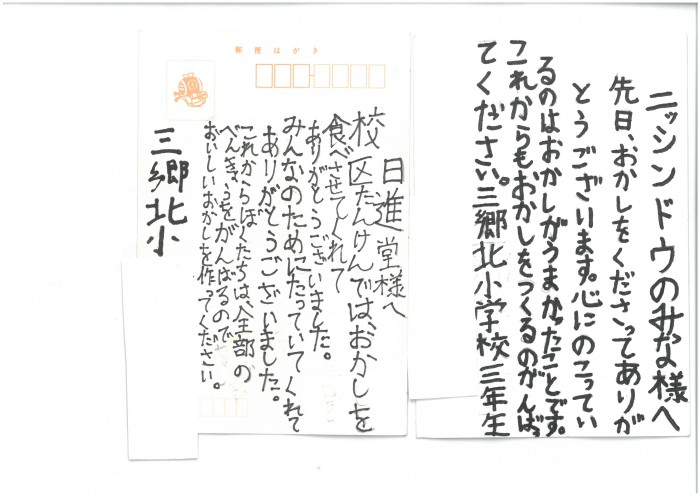 ニッシンドウのみな様へ
先日、おかしをくださってありが
とうございます。心にのこってい
るのはおかしがうまかったことです。
これからもおかしをつくるのがんばっ
てください。三郷北小学校三年生
郵便はがき
日進堂様へ
校区たんけんでは、おかしを
食べさせてくれて
ありがとうございました。
みんなのためにたっていてくれて
ありがとうございました。
これからぼくたちは、全部の
べんきょうをがんばるので
おいしいおかしを作ってください。
三郷北小